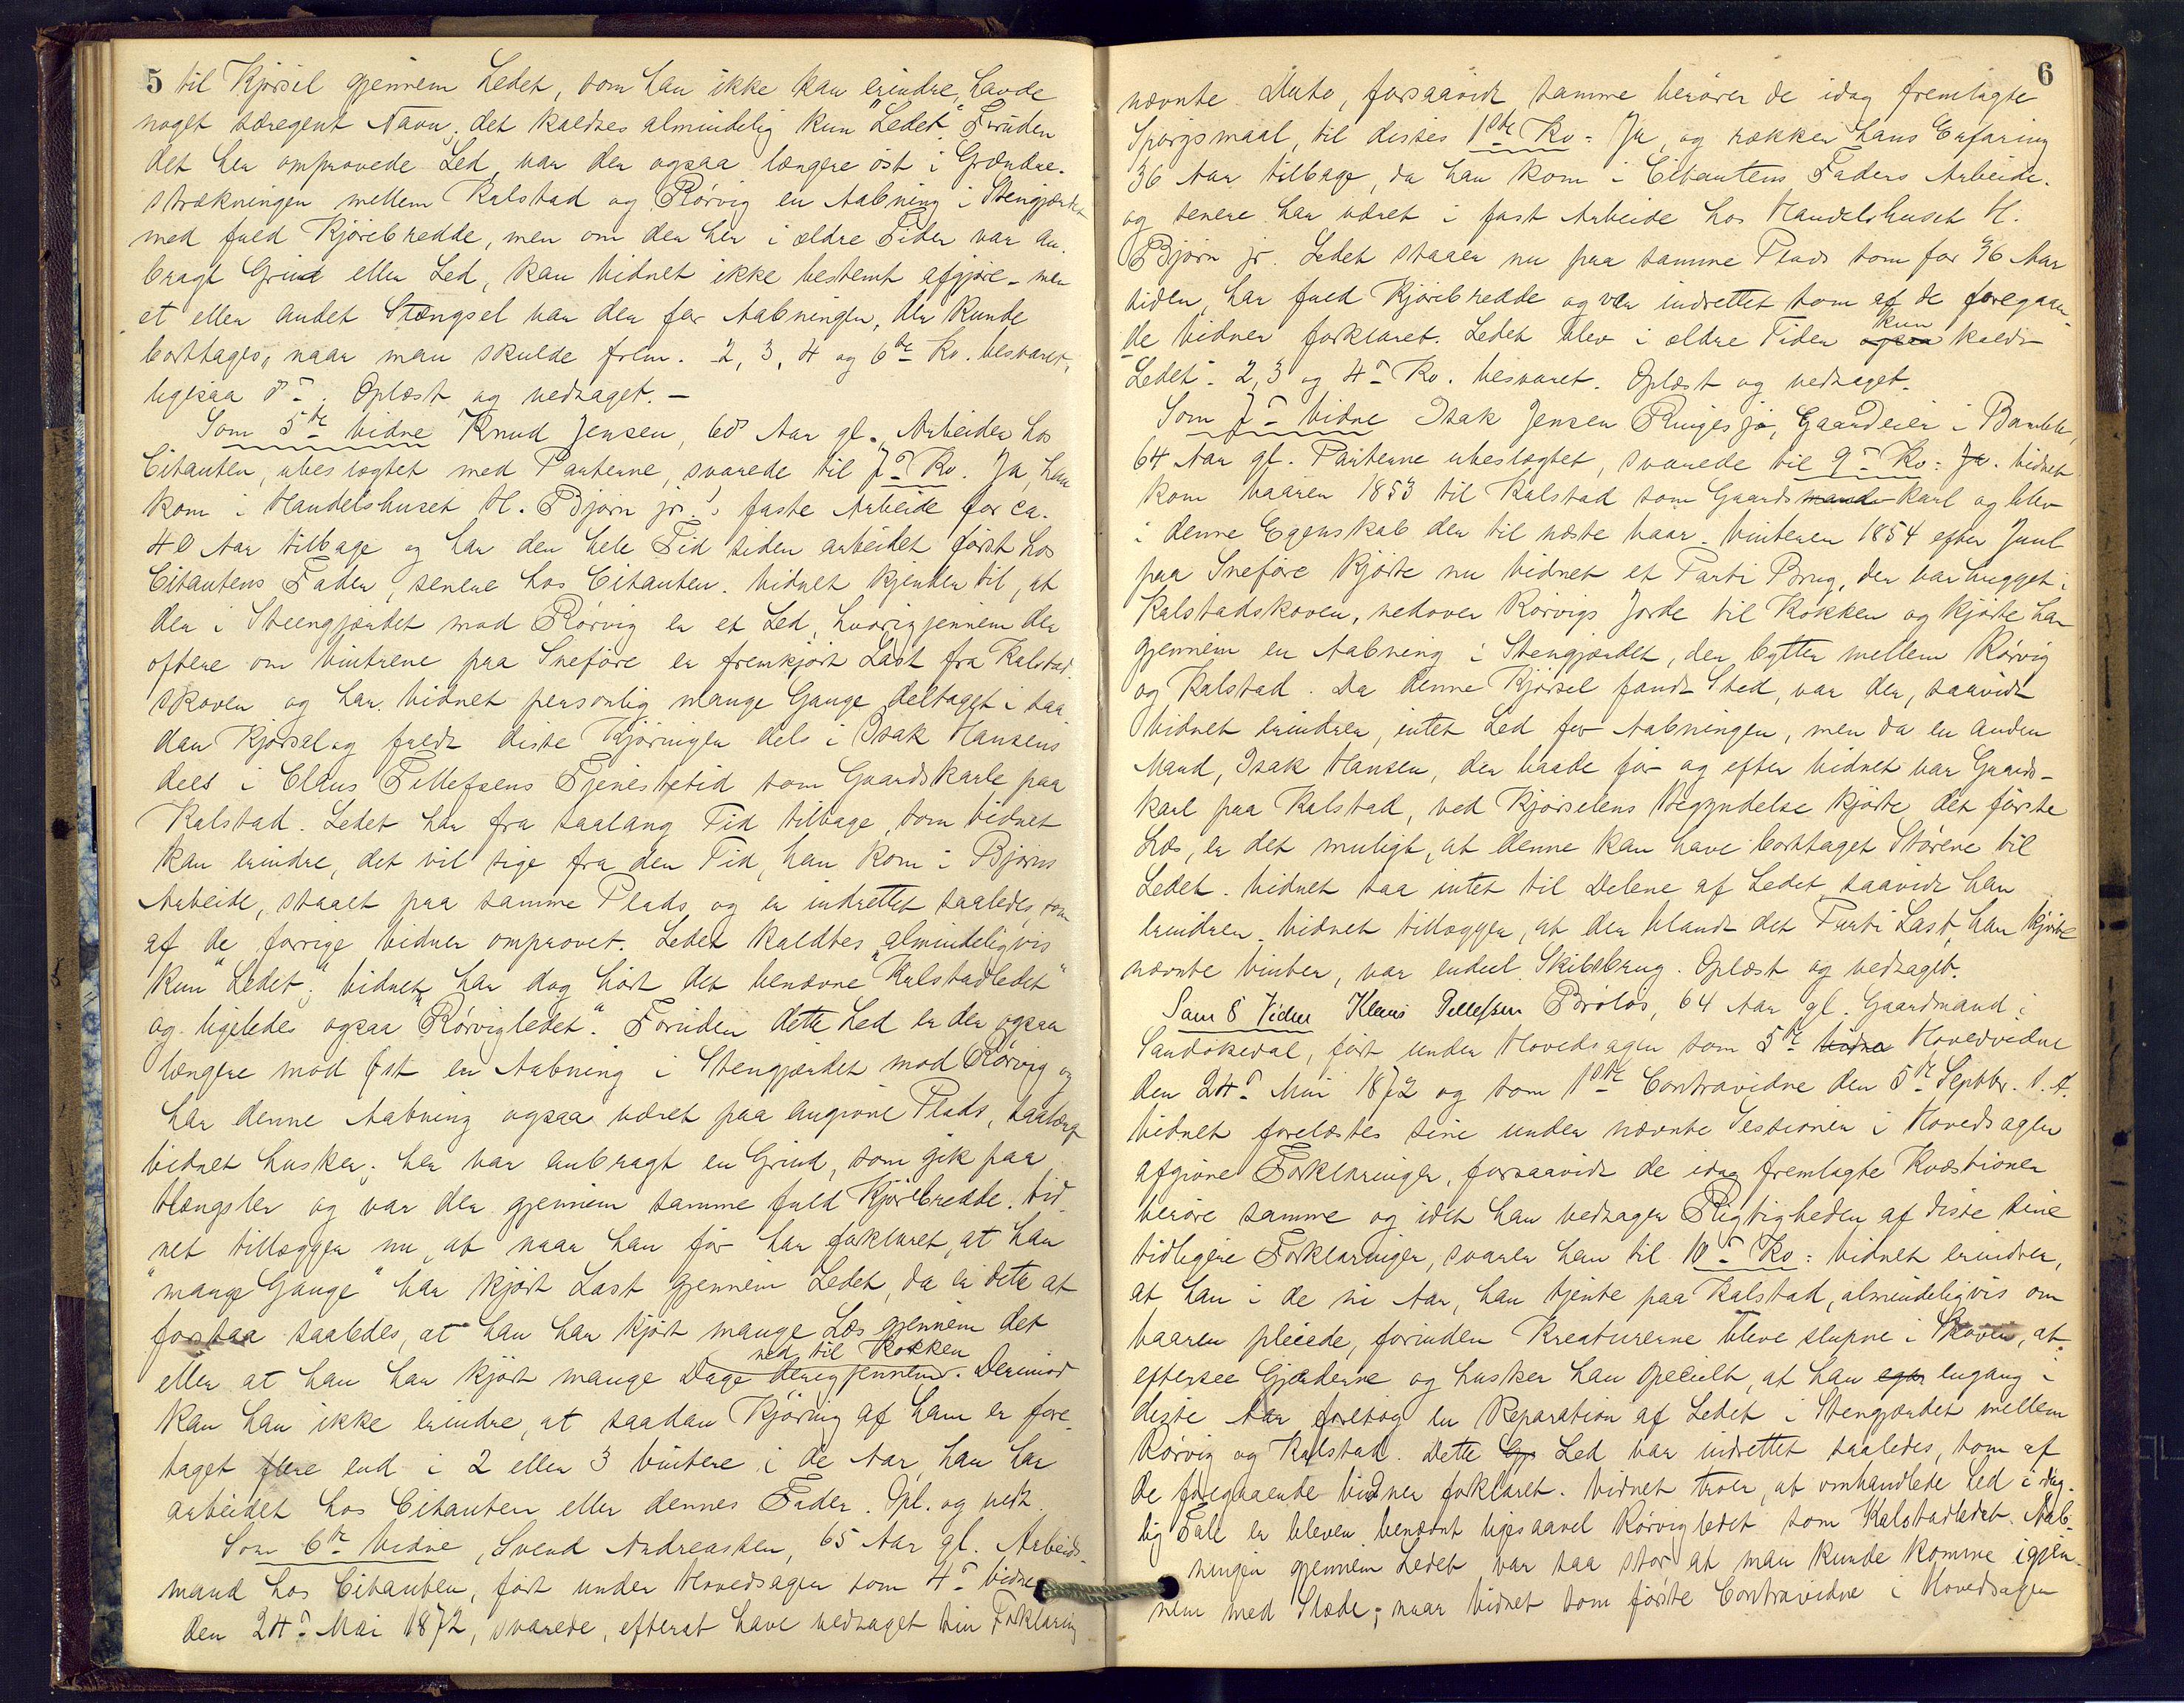 5
til Kjørsel gjennem Ledet, som han ikke kan erindre, havde
noget særegent Navn; det kaldtes almindelig kun "Ledet". Foruden
det her omprovede Led, var der ogsaa længere øst i Grændse-
strækningen mellem Kalstad og Rørvig en Aabning i Stengjærdet
med fuld Kjørebredde, men om der her i ældre Tider var an-
bragt Grind eller Led, kan Vidnet ikke bestemt afgjøre - men
et eller andet Stængsel var der for Aabningen, der kunde
borttages, naar man skulde frem. 2, 3, 4 og 6te Kv. besvaret,
ligesaa 8de. Oplæst og vedtaget. -
Som 5te Vidne Knud Jensen, 60 Aar gl., Arbeider hos
Citanten, ubeslægtet med Parterne, svarede til 7de Kv. Ja, han
kom i Handelshuset H. Bjørn jr.s faste Arbeide for ca.
40 Aar tilbage og har den hele Tid siden arbeidet først hos
Citantens Fader, senere hos Citanten. Vidnet kjender til, at
der i Steengjærdet mod Rørvig er et Led, hvorigjennem der
oftere om Vintrene paa Sneføre er fremkjørt Last fra Kalstad-
skoven og har Vidnet personlig mange Gange deltaget i saa-
dan Kjørsel og faldt disse Kjøringer dels i Isak Hansens
dels i Claus Tellefsens Tjenestetid som Gaardskarle paa
Kalstad. Ledet har fra saalang Tid tilbage, som Vidnet
kan erindre, det vil sige fra den Tid, han kom i Bjørns
Arbeide, staaet paa samme Plads og er indrettet saaledes, som
af de forrige Vidner omprovet. Ledet kaldtes almindeligvis
kun "Ledet"; Vidnet har dog hørt det benævne "Kalstadledet"
og ligeledes ogsaa "Rørvigledet". Foruden dette Led er der ogsaa
længere mod Øst en Aabning i Stengjærdet mod Rørvig og
har denne Aabning ogsaa været paa angivne Plads, saalænge
Vidnet husker; her var anbragt en Grind, som gik paa
Hængsler og var der gjennem samme fuld Kjørebredde. Vid-
net tillægger nu, at naar han før har forklaret, at han
"mange Gange" har kjørt Last gjennem Ledet, da er dette at
forstaa saaledes, at han har kjørt mange Læs gjennem det
ned til Kokken
eller at han har kjørt mange Dage derigjennem. Derimod
kan han ikke erindre, at saadan Kjøring af ham er fore-
taget flere end i 2 eller 3 Vintere i de Aar, han har
arbeidet hos Citanten eller dennes Fader. Opl. og vedt.
Som 6te Vidne, Svend Andreassen, 65 Aar gl. Arbeids-
mand hos Citanten, ført under Hovedsagen som 4de Vidne
den 24de Mai 1872, svarede, efterat have vedtaget sin Forklaring
6
nævnte Dato, forsaavidt samme berører de idag fremlagte
Spørgsmaal, til disses 1ste Kv: Ja, og rækker hans Erfaring
36 Aar tilbage, da han kom i Citantens Faders Arbeide.
og senere har været i fast Arbeide hos Handelshuset H.
Bjørn jr. Ledet staaer nu paa samme Plads som for 36 Aar
siden, har fuld Kjørebredde og var indrettet som af de foregaaen-
kun
de Vidner forklaret. Ledet blev i ældre Tider ogsaa kaldt
Ledet. 2, 3 og 4de Kv. besvaret. Oplæst og vedtaget.
Som 7de Vidne Isak Jensen Ringesjø, Gaardeier i Bamble,
64 Aar gl. Parterne ubeslægtet, svarede til 9de Kv: Ja. Vidnet
kom Vaaren 1853 til Kalstad som Gaardsmands karl og blev
i denne Egenskab der til næste Vaar. Vinteren 1854 efter Juul
paa Sneføre kjørte nu Vidnet et Parti Brug, der var hugget i
Kalstadskoven, nedover Rørvigs Jorde til Kokken og kjørte han
gjennem en Aabning i Stengjærdet, der bytter mellem Rørvig
og Kalstad. Da denne Kjørsel fandt Sted, var der, saavidt
Vidnet erindrer, intet Led for Aabningen, men da en anden
Mand, Isak Hansen, der baade før og efter Vidnet var Gaards-
karl paa Kalstad, ved Kjørselens Begyndelse kjørte det første
Læs, er det muligt, at denne kan have borttaget Størene til
Ledet. Vidnet saa intet til Delene af Ledet saavidt han
erindrer. Vidnet tillægger, at der blandt det Parti Last, han kjørte
nævnte Vinter, var endeel Skibsbrug. Oplæst og vedtaget.
Som 8 Vidne Klaus Tellefsen Brøløs, 64 Aar gl. Gaardmand i
Sandøkedal, ført under Hovedsagen som 5te Vidne Hovedvidne
den 24de Mai 1872 og som 1ste Contravidne den 5te Septbr. s. A.
Vidnet forelæstes sine under nævnte Sessioner i Hovedsagen
afgivne Forklaringer, forsaavidt de idag fremlagte Kvæstioner
berøre samme og idet han vedtager Rigtigheden af disse sine
tidligere Forklaringer, svarer han til 10de Kv: Vidnet erindrer,
at han i de ni Aar, han tjente paa Kalstad, almindeligvis om
Vaaren pleiede, forinden Kreaturerne bleve slupne i Skoven, at
eftersee Gjærderne og husker han specielt, at han engang i
disse Aar foretog en Reparation af Ledet i Stengjærdet mellem
Rørvig og Kalstad. Dette Led var indrettet saaledes, som af
de foregaaende Vidner forklaret. Vidnet troer, at omhandlede Led i dag-
lig Tale er bleven benævnt ligesaavel Rørvigledet som Kalstadledet. Aab-
ningen gjennem Ledet var saa stor, at man kunde komme igjen-
nem med Slæde; naar Vidnet som første Contravidne i Hovedsagen